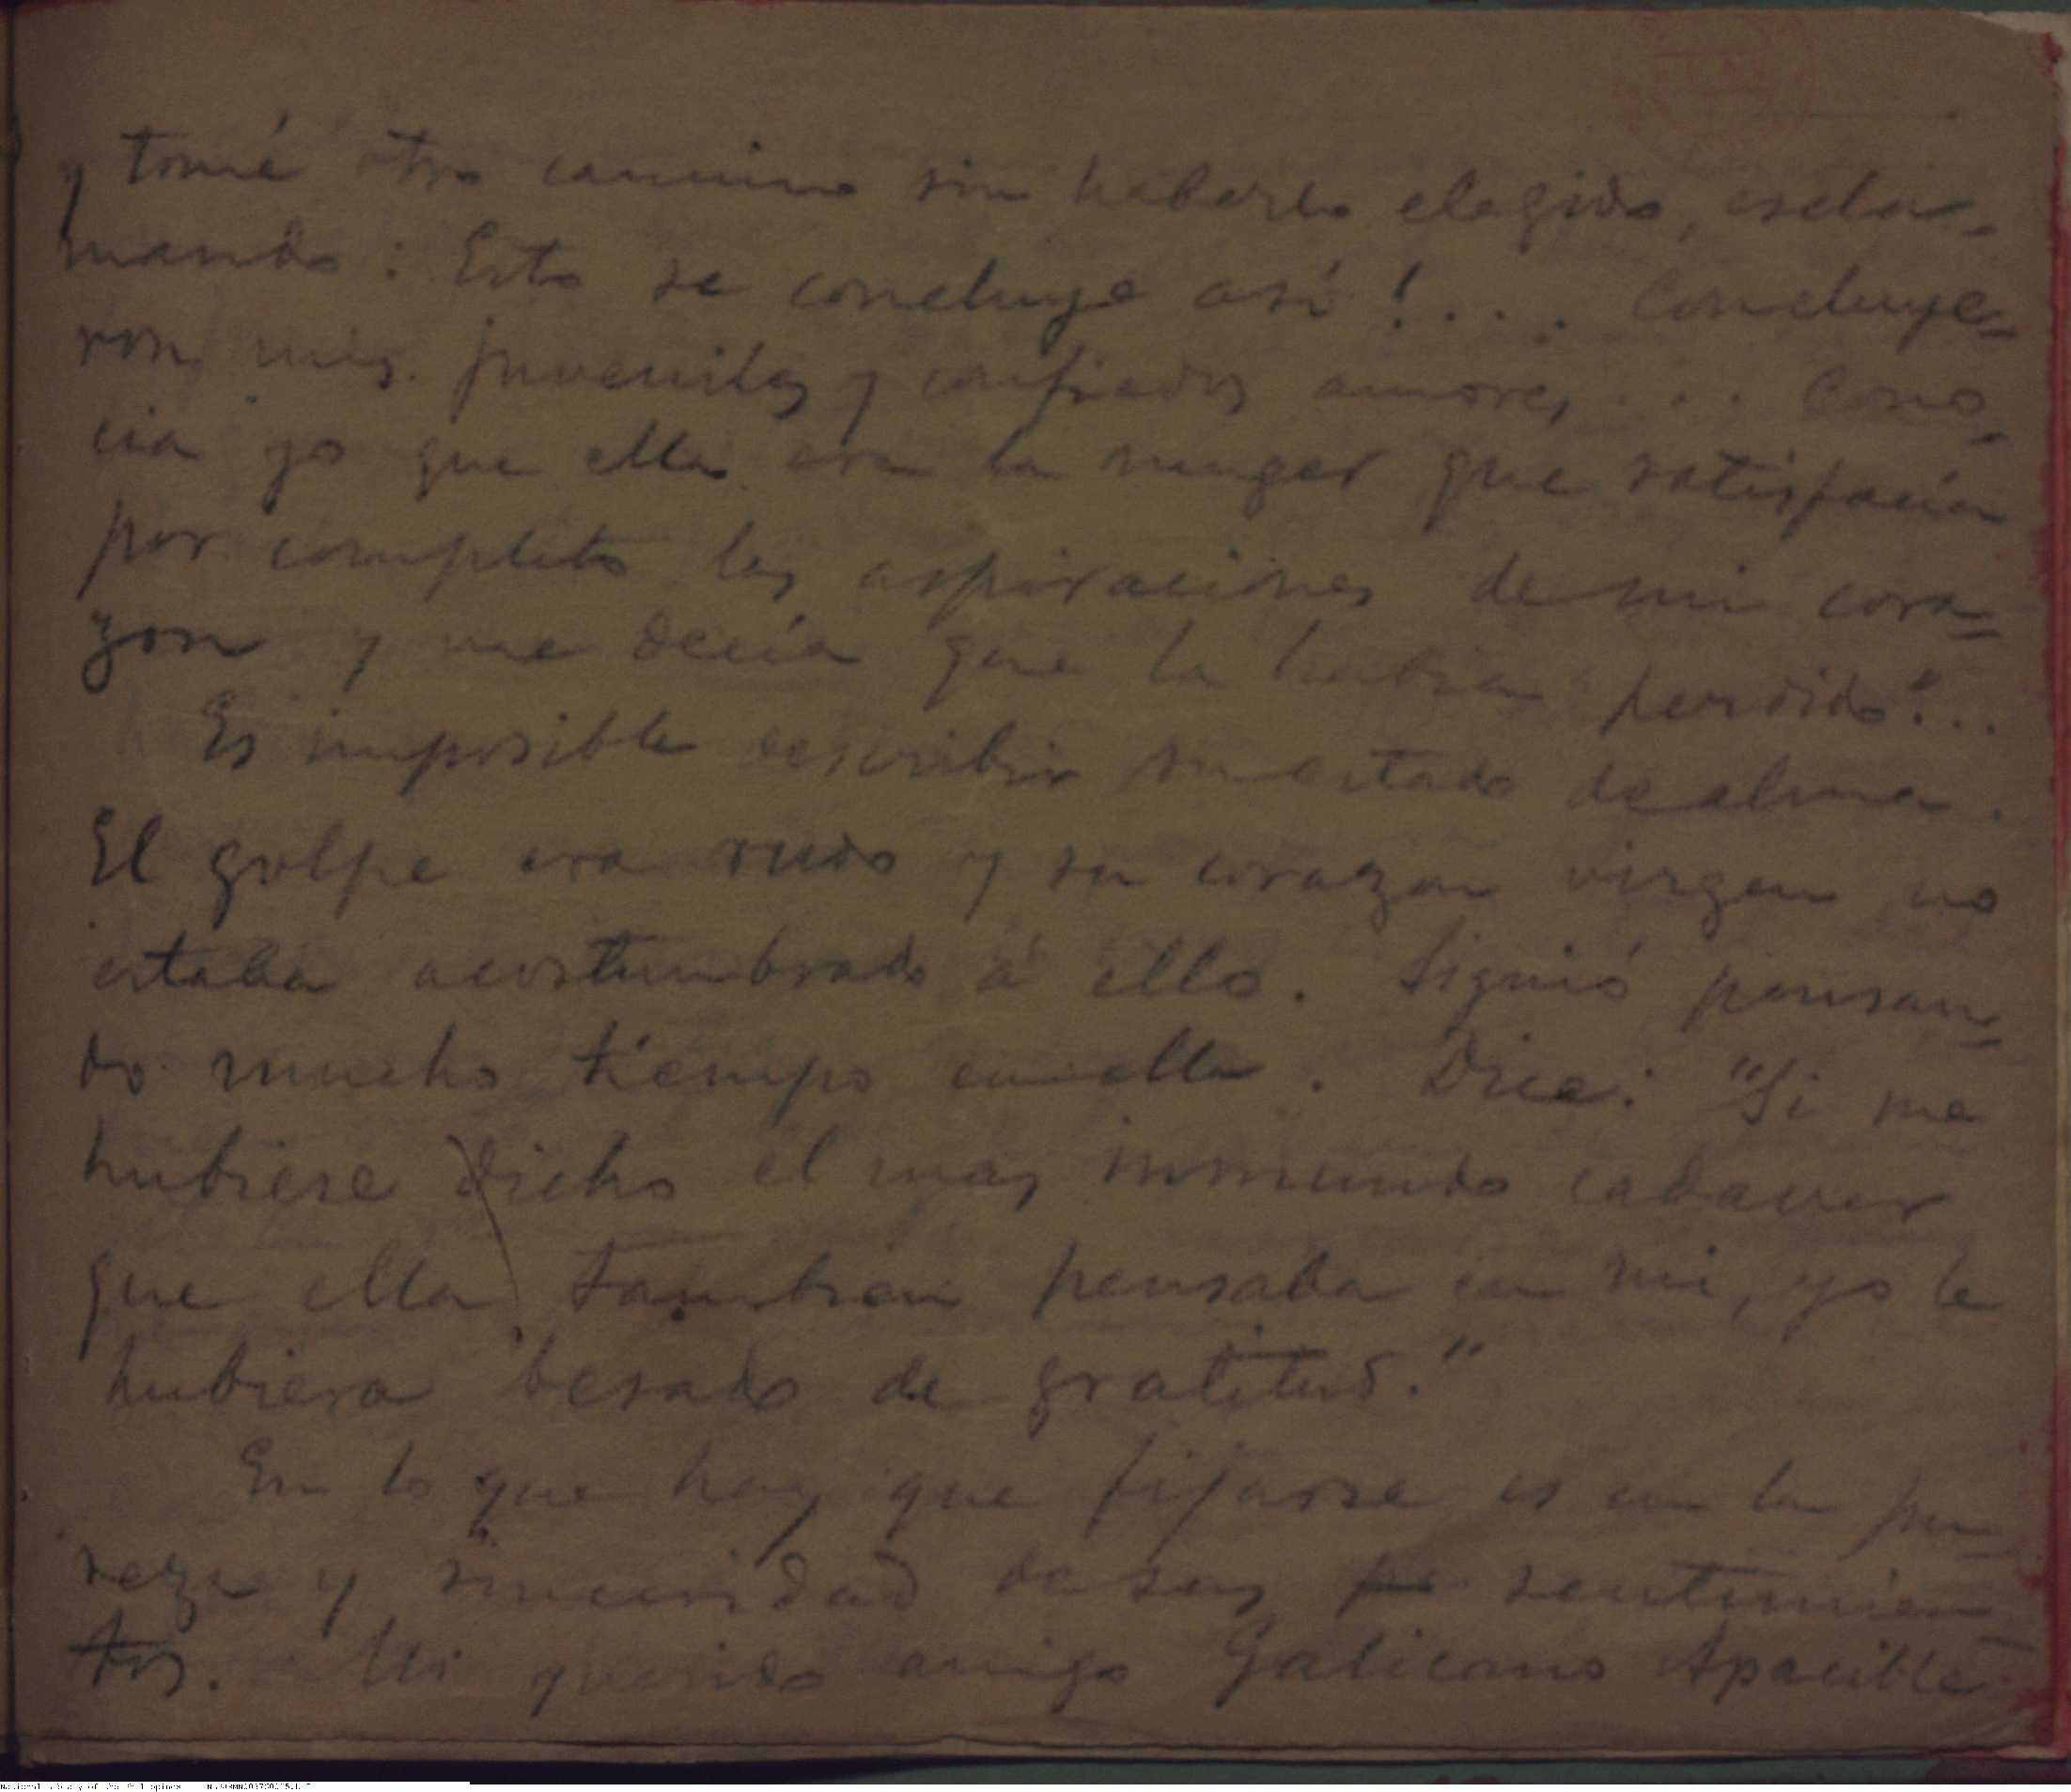 y tomé otro camino sin haberlo elegido, escla-
mando: Esto se concluye así!.... Concluye-
ron mis juveniles y confiados amores... Cono-
cia yo que ella era la muger que satisfacía
por completo las aspiraciones de mi cora-
zon y me decía que la había perdido!...
Es imposible describir su estado de alma.
El golpe era rudo y su corazon virgen no
estaba acostumbrado á ello. Siguió pensan-
do mucho tiempo en ella. Dice: "Si me
hubiese dicho el mas inmundo cadaver
que ella tambien pensaba en mi, yo le
hubiera besado de gratitud."
En lo que hay que fijarse es en la pu-
reza y sinceridad de sus sentimien-
tos. Mi querido amigo Galicano Apacible